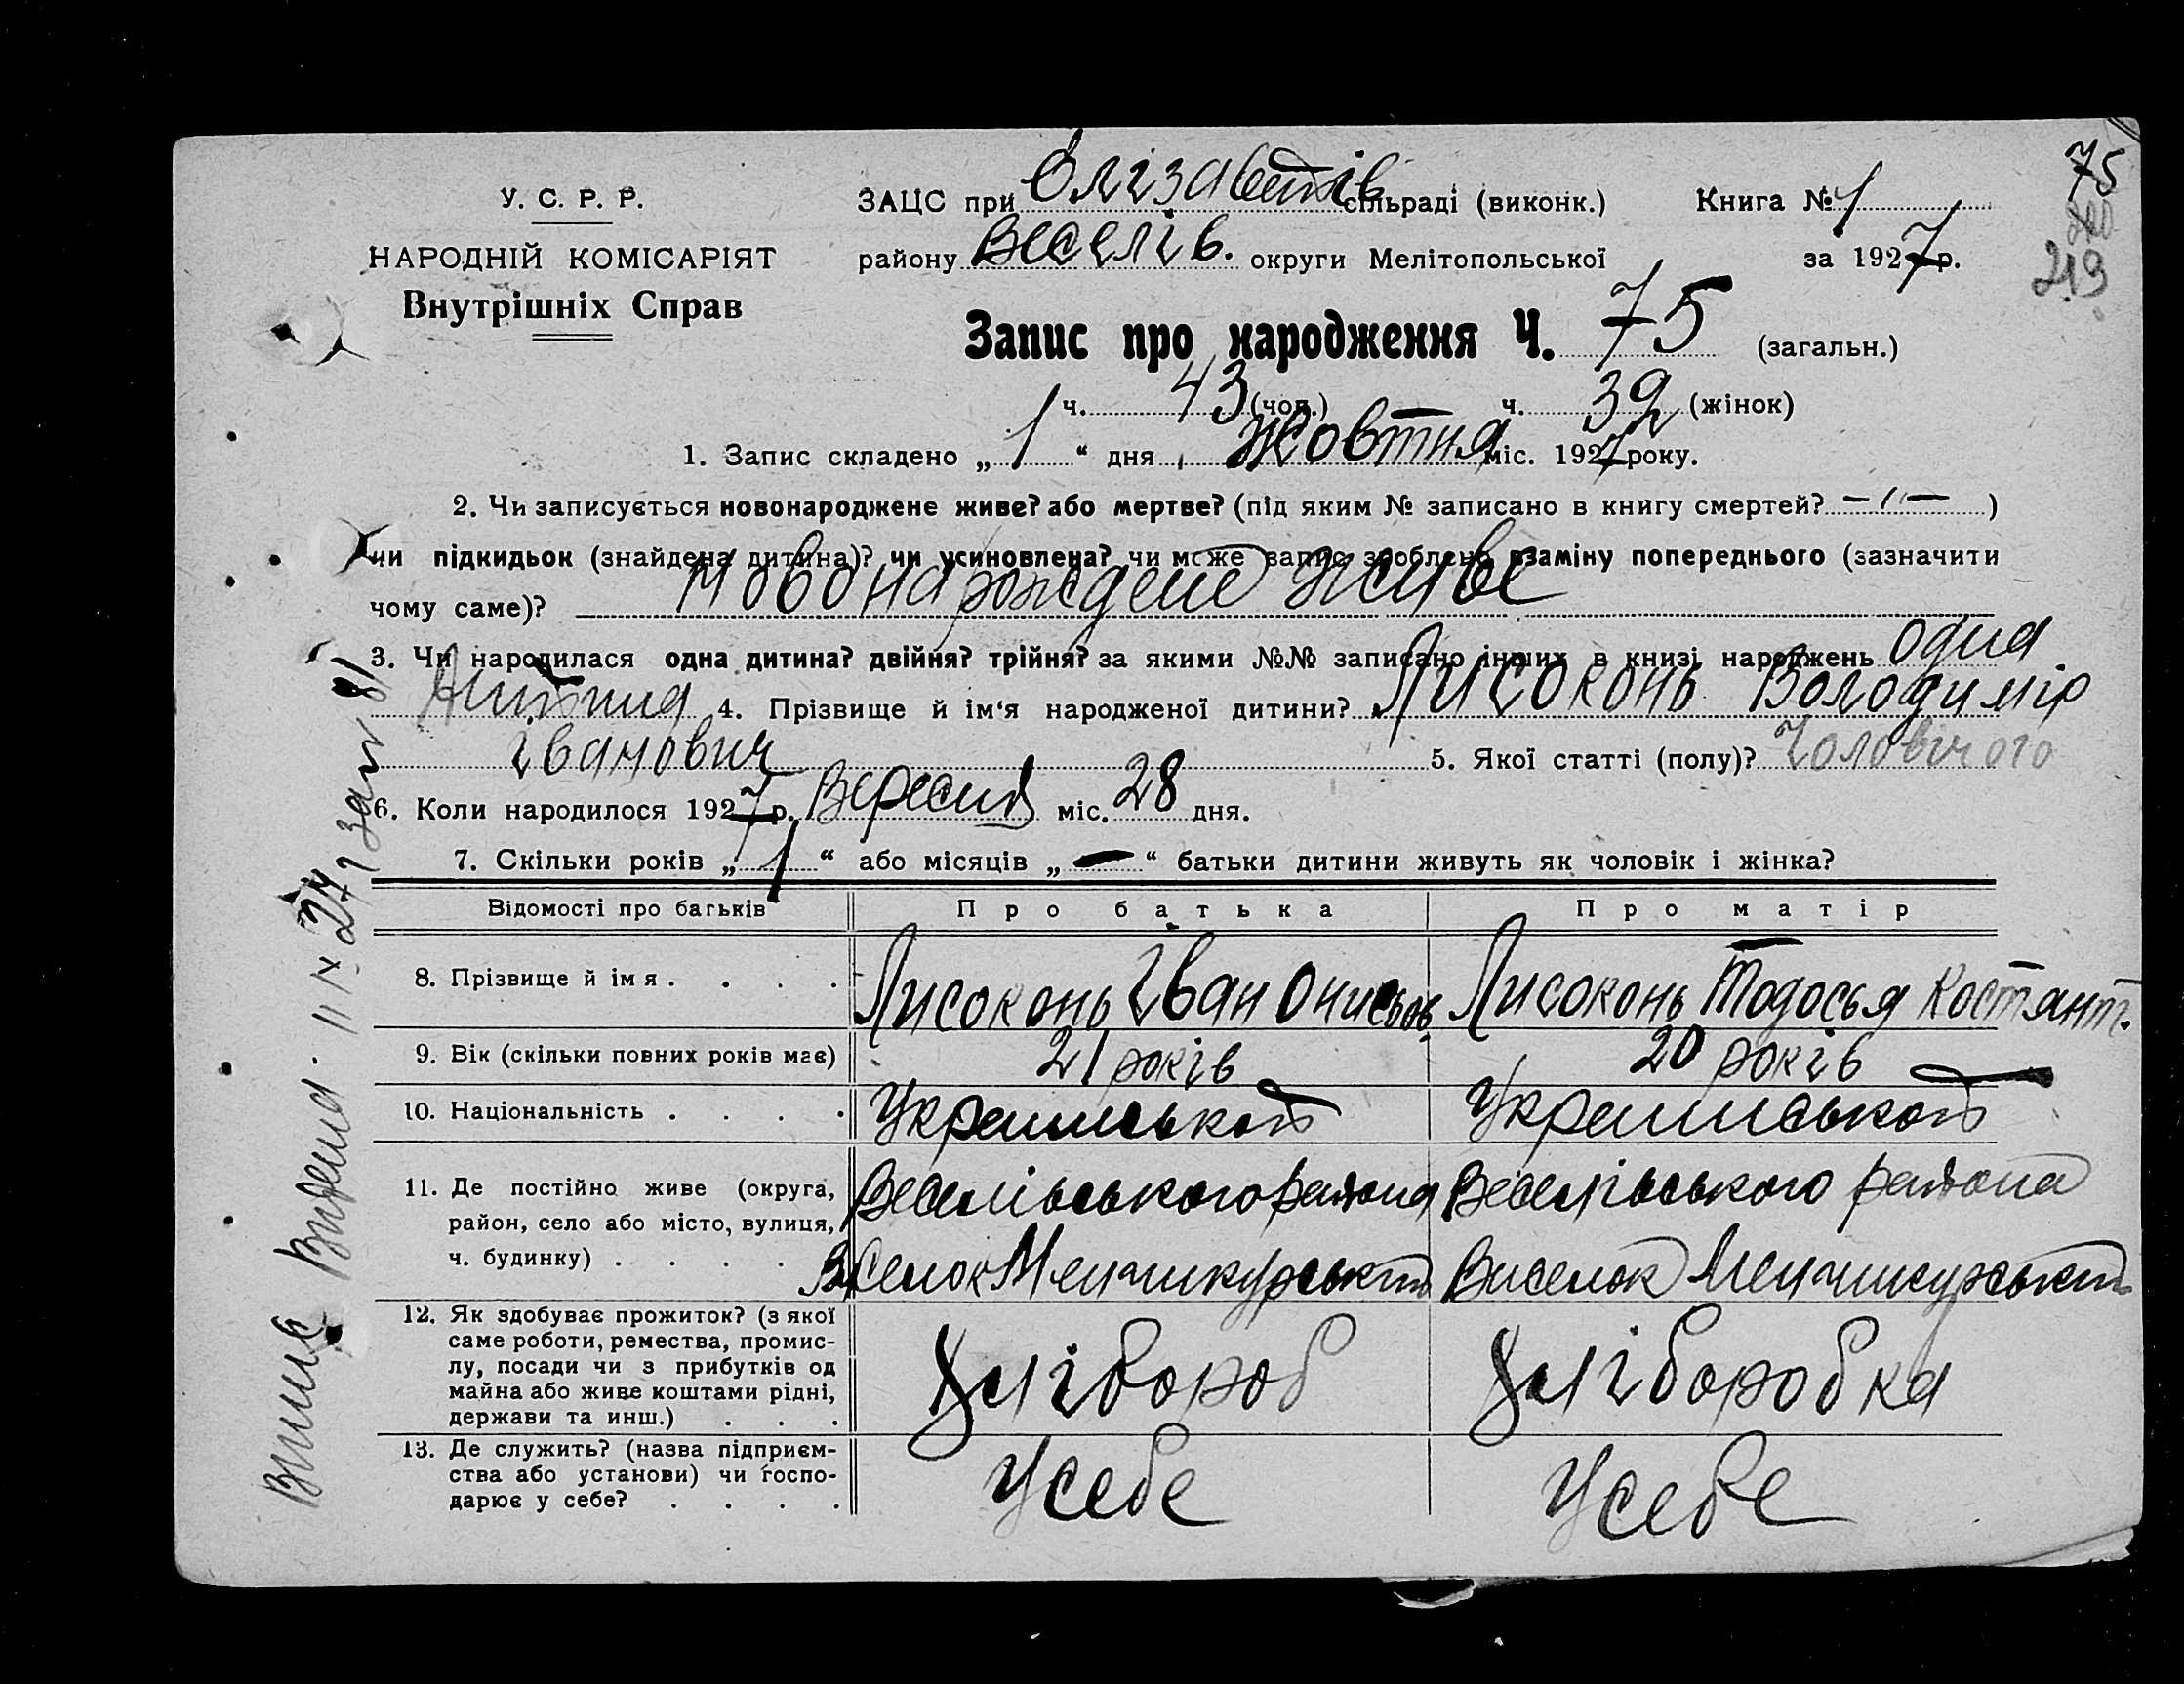 75
219
У. С. Р. Р.
НАРОДНІЙ КОМІСАРІЯТ
Внутрішніх Справ
ЗАЦС при Єлізаветів сільраді (виконк.) Книга № 1
району Веселів. округи Мелітопольської за 1927 р.
Запис про народження Ч. 75 (загальн.)
ч. 43 (чол.) ч. 32 (жінок)
1. Запис складено „ 1 “ дня Жовтня міс. 1927 року.
2. Чи записується новонароджене живе? або мертве? (під яким № записано в книгу смертей? – // – )
чи підкидьок (знайдена дитина)? чи усиновлена? чи може запис зроблено взаміну попереднього (зазначити
чому саме)? новонарождене живе
3. Чи народилася одна дитина? двійня? трійня? за якими №№ записано інших в книзі народжень одна
дитина 4. Прізвище й ім‘я народженої дитини? Лисоконь Володимір
іванович 5. Якої статті (полу)? Чоловічого
6. Коли народилося 1927 р. Вересня міс. 28 дня.
7. Скільки років „ 1 “ або місяців „ – “ батьки дитини живуть як чоловік і жінка?
Відомості про батьків Про батька Про матір
8. Прізвище й ім я . . . . Лисоконь Іван Онисьов. Лисоконь Тодосья Костянт.
9. Вік (скільки повних років має) 21 років 20 років
10. Національність . . . .
11. Де постійно живе (округа,
район, село або місто, вулиця,
ч. будинку) . . . .
Веселівського района Веселівського района
Виселок Менчикурський Виселок Менчикурський
12. Як здобуває прожиток? (з якої
саме роботи, ремества, промис-
лу, посади чи з прибутків од
майна або живе коштами рідні,
держави та инш.) . . .
Хлібороб Хліборобка
13. Де служить? (назва підприєм-
ства або установи) чи госпо-
дарює у себе? . . . .
Усебе Усебе